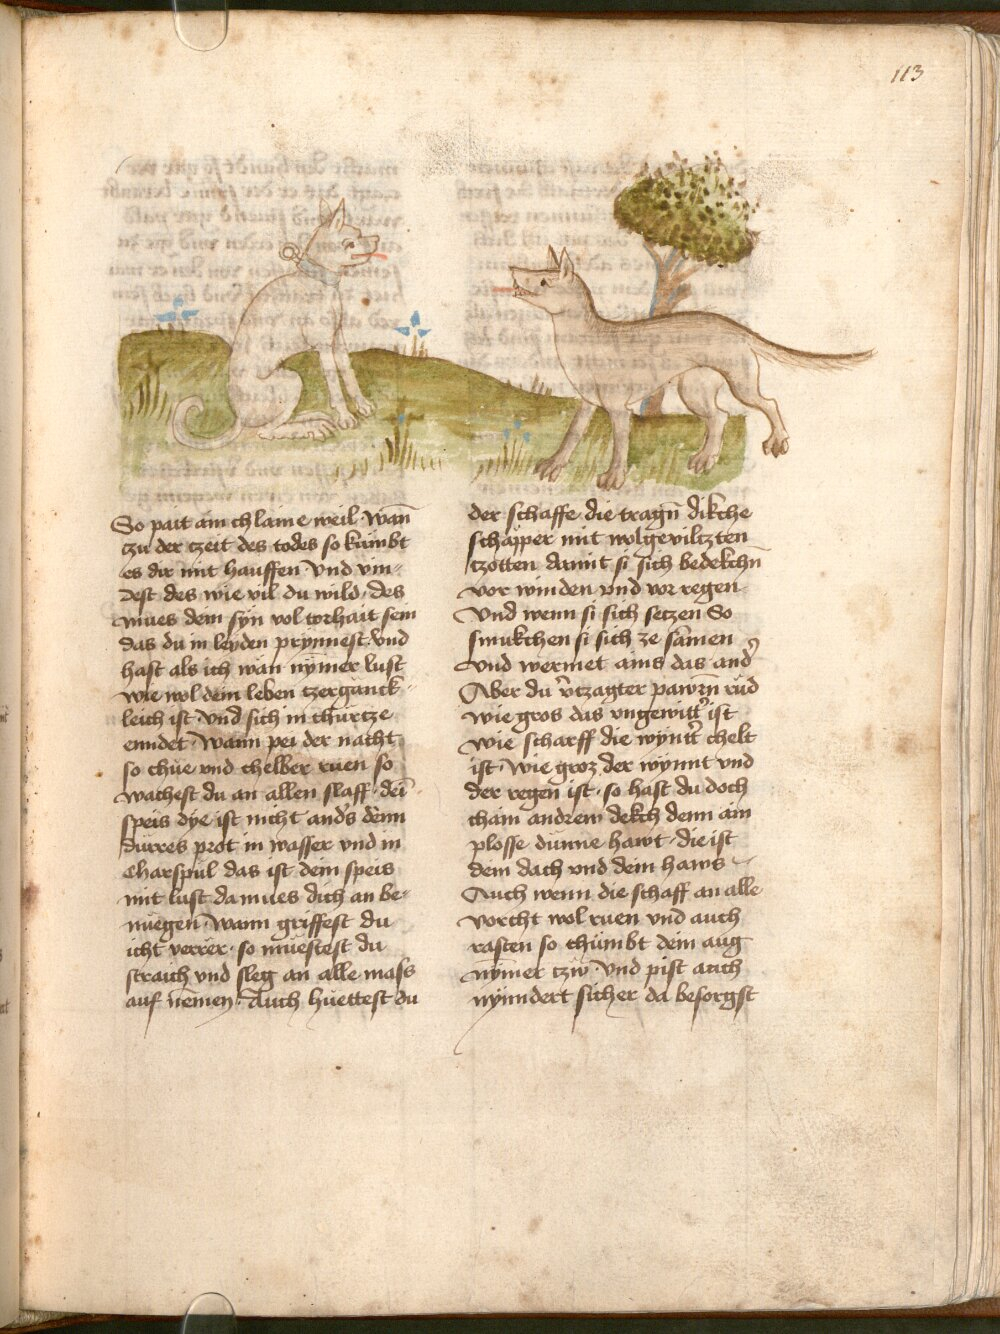 113
So pait ain chlaine weil · wan̄
tzu der tzeit des todes so kumbt
es dir mit hauffen · Vnd vin-
dest des wie vil du wild · des
mues dein syn vol torhait sein
das du in leyden prynnest · vnd
hast als ich wän nymer lust
wie wol dein leben tzerganck-
leich ist · Vnd sich in churtze
enndet · Wann pei der nacht
so chüe vnd chelber ruen so
wachest du an allen slaff · dei̅
speis dye ist nicht and̓s denn
durres prot in wasser vnd in
Charspül das ist dein speis
mit lust da mues dich an be-
nuegen · Wann griffest du
icht verrer · so muestest du
straich vnd sleg an alle mass
auf nemen · Auch huettest du
der schaffe · die tragn̄ dikche
schapper mit wolgeviltzten
tzotten damit si sich bedekchn̄
vor winden vnd vor regen
Vnd wenn si sich setzen So
smukchen si sich ze samen
Vnd wermet ains das and̓
Aber du v̓tzagter pawrn rüd
wie gros das vngewitt̓ ist
wie scharff die wynt̓ chelt
ist · Wie groz der wynnt vnd
der regen ist · so hast du doch
chain andrew dekch denn ain
plosse dunne hawt · die ist
dein dach vnd dein haws
Auch wenn die schaff an alle
vorcht wol ruen vnd auch
rasten so chumbt dein aug
nymer tzw · Vnd pist auch
nynndert sicher da besorgst